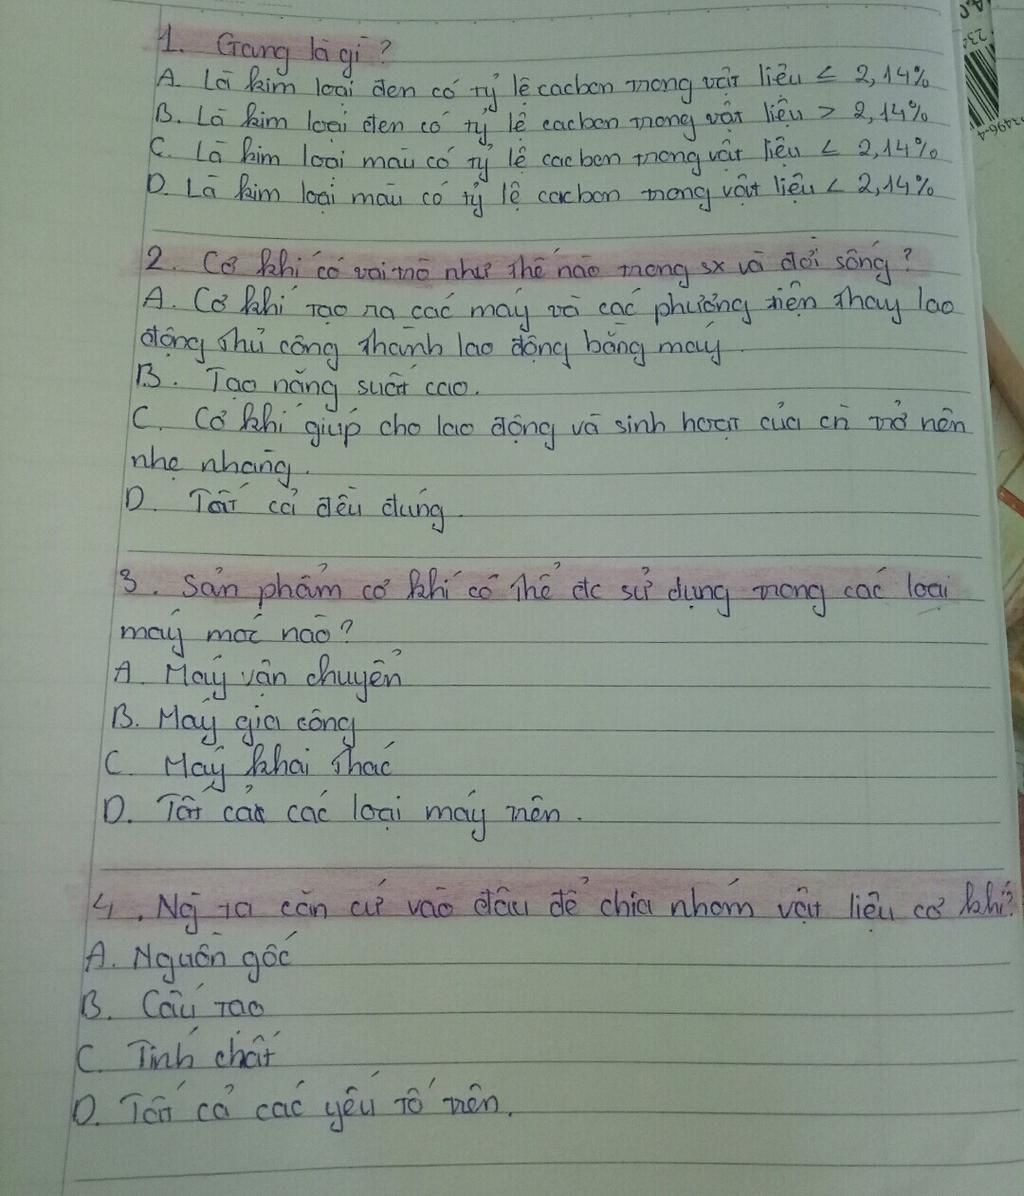 1. Gang là gì?
A. Là kim loại đen có tỷ lệ cacbon trong vật liệu ≤ 2,14%
B. Là kim loại đen có tỷ lệ cacbon trong vật liệu > 2,14%
C. Là kim loại màu có tỷ lệ cacbon trong vật liệu ≤ 2,14%
D. Là kim loại màu có tỷ lệ cacbon trong vật liệu < 2,14%
2. Cơ khí có vai trò như thế nào trong sx và đời sống?
A. Cơ khí tạo ra các máy và các phương tiện thay lao
động thủ công thành lao động bằng máy.
B. Tạo năng suất cao.
C. Cơ khí giúp cho lao động và sinh hoạt của cn trở nên
nhẹ nhàng.
D. Tất cả đều đúng.
3. Sản phẩm cơ khí có thể đc sử dụng trong các loại
máy móc nào?
A. Máy vận chuyển
B. Máy gia công
C. Máy khai thác
D. Tất cả các loại máy trên.
4. Ng ta căn cứ vào đâu để chia nhóm vật liệu cơ khí?
A. Nguồn gốc
B. Cấu tạo
C. Tính chất
D. Tất cả các yếu tố trên.